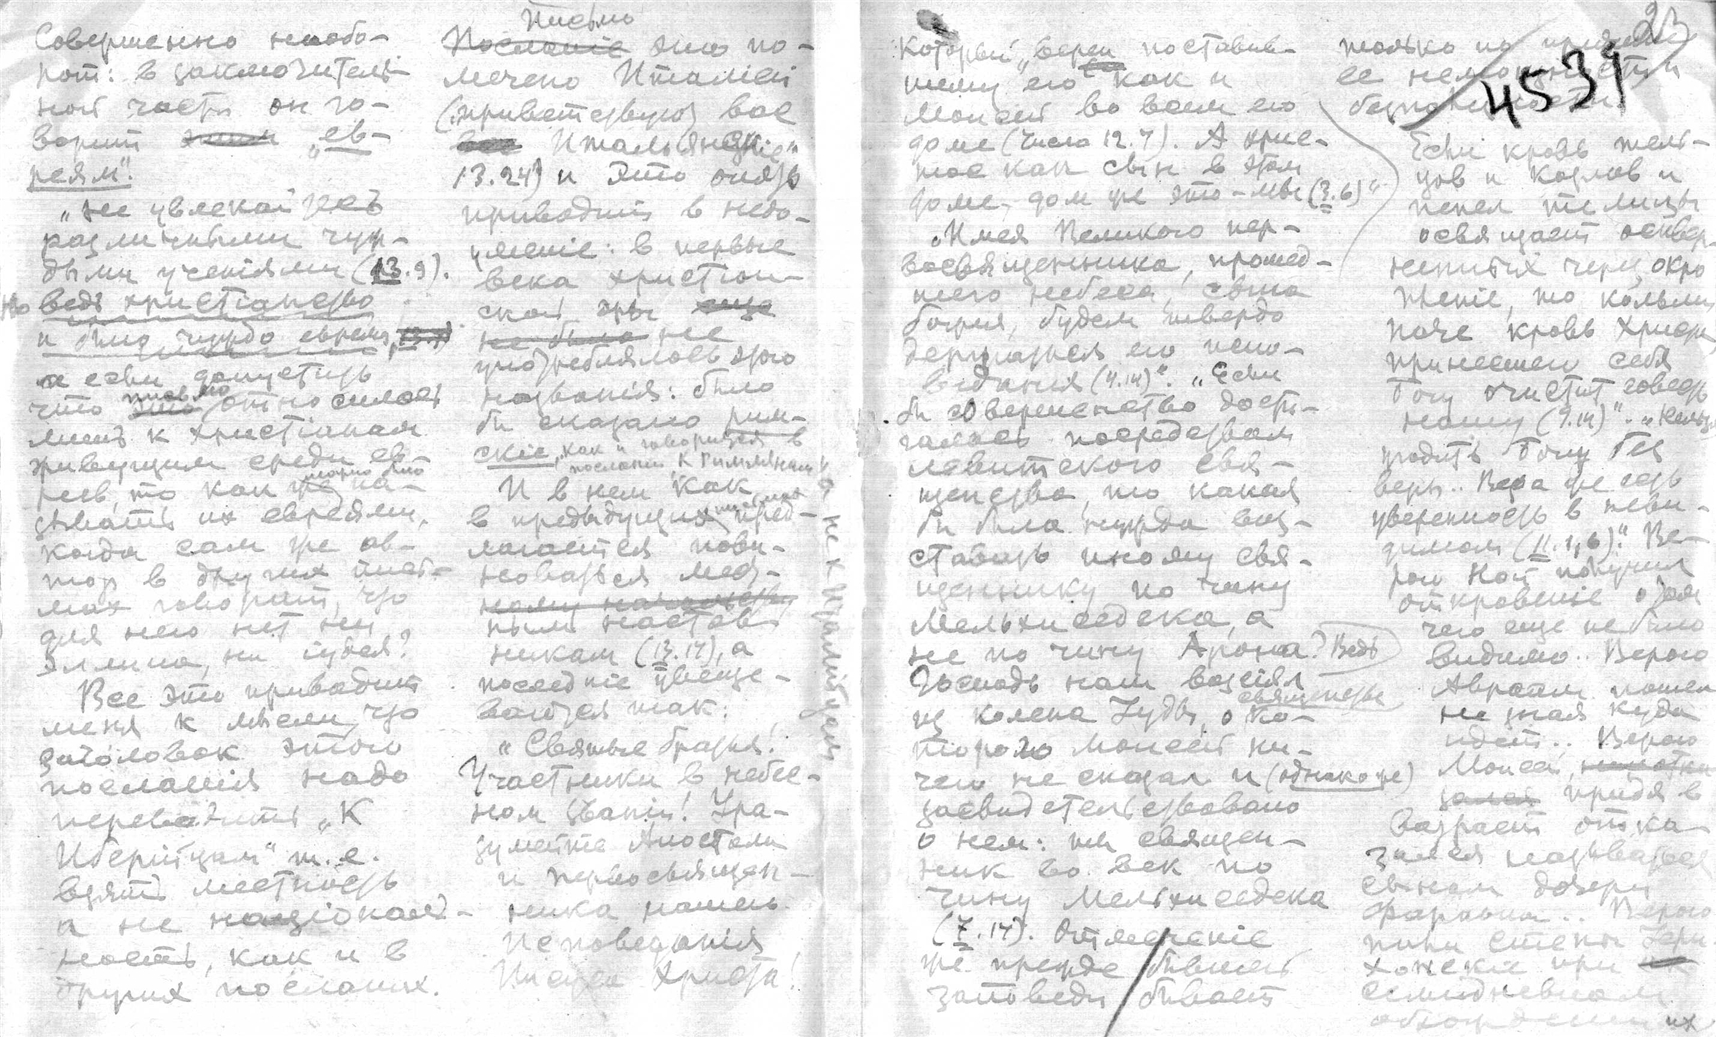 Совершенно наобо-
рот: в заключитель-
ной части он го-
ворит „ев-
реям".
„Не увлекайтесь
различными чуж-
дыми учениями (13.9).
Но ведь христианство
и было чуждо евреям,
а если допустить
что письмо относилось
лишь к христианам
живущим среди ев-
реев, то как же можно было на-
зывать их евреями,
когда сам же ав-
тор в других пись-
мах говорит, что
для него нет ни
Эллина, ни іудея?
Все это приводит
меня к мысли, что
заголовок этого
посланія надо
переводить „К
Иберійцам" т.е.
взять местность
а не націонал-
ность, как и в
других посланиях.
Письмо
Посланіе это по-
мечено Италіей
(приветствуют вас
все Итальянскіе"
13.24) и это опять
приводит в недо-
уменіе: в первые
века христіан-
ской эры еще
не было не
употреблялось этого
названія: было
бы сказано рим-
скіе, как и говорится в
посланіи К Римлянам
а не к Италійцам
И в нем как
в предыдущих пред-
лагается пови-
новаться мест-
ным настав-
никам (13.17), а
последніе увеще-
ваются так:
„Святые братья!
Участники в небес-
ном званіи! Ура-
зумейте Апостола
и первосвящен-
ника нашего
Исповеданія
Иисуса Христа!
который верен поставив-
шему его как и
Моисей во всем его
доме (Числа 12.7). А Хрис-
тос как сын в этом
доме, дом же это - мы (3.6)"
„Имея Великого пер-
восвященника, прошед-
шего небеса, сына
божия, будем твердо
держаться его испо-
ведания (4.14)". „Если
бы совершенство дости-
галось посредством
левитского свя-
щенства, то какая
бы была нужда воз-
ставать иному свя-
щеннику по чину
Мельхиседека, а
не по чину Аарона? Ведь
Господь наш возсіял
из колена Іуды, о ко-
тором Моисей ни-
чего не сказал и (однако же)
засвидетельствовано
о нем: ты священ-
ник во век по
чину Мелхиседека
(7.17). Отмененіе
же прежде бывшей
заповеди бывает
23
только по причине
ее немощности и
безполезности
4539
Если кровь тель-
цов и козлов и
пепел телицы
освящает осквер-
ненных через окро
пленіе, то кольми
паче кровь Христа,
принесшего себя
Богу очистит совесть
нашу (9.14)". „Нельзя
угодить Богу без
веры.. Вера же есть
уверенность в неви-
димом (11.1,6)". Ве-
рою Ной получил
откровеніе о том
чего еще не было
видимо.. Верою
Авраам пошел
не зная куда
идет.. Верою
Моисей,
придя в
возраст отка-
зался называться
сыном дочери
Фараона.. Верою
пали стены Іери-
хонскіе при
семидневном
обхождении их